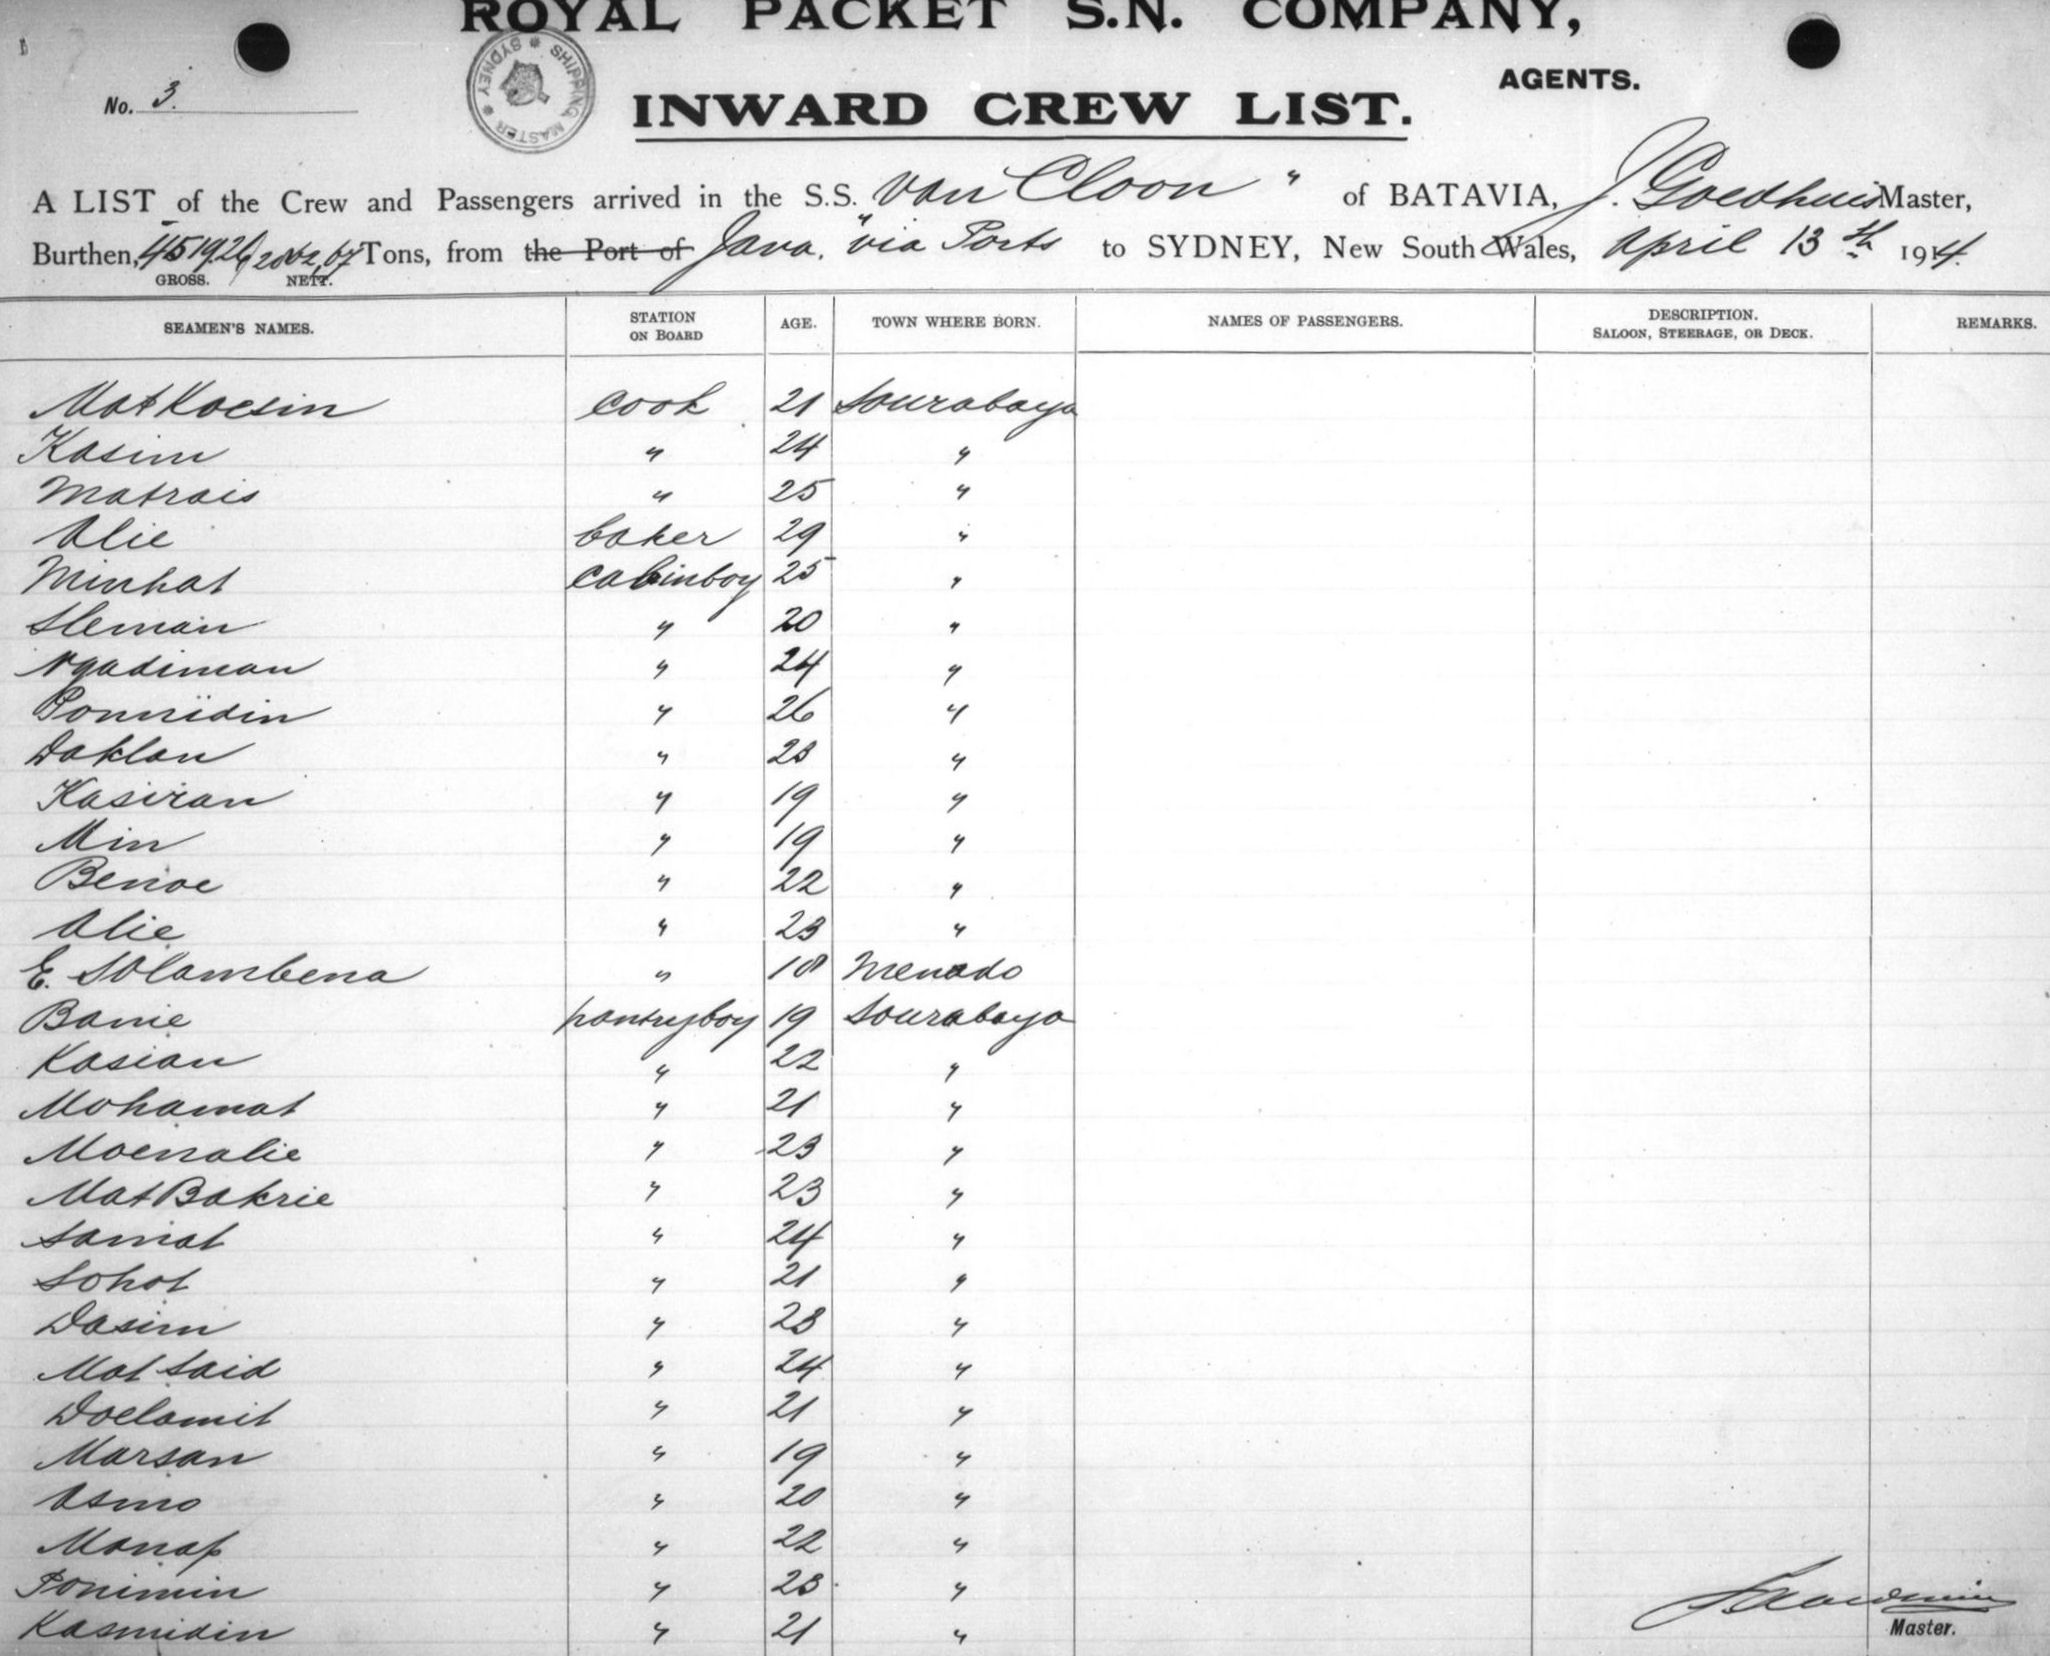 ROYAL PACKET S.N. COMPANY,
AGENTS.
No. 3.
SHIPPING MASTER * SYDNEY *
INWARD CREW LIST.
A LIST of the Crew and Passengers arrived in the S.S. van Cloon " of BATAVIA, J. Goedhuis Master,
Burthen, 4519.26 Tons, from the Port of Java. "via Ports to SYDNEY, New South Wales, April 13th 1914.
GROSS. NETT.
SEAMEN'S NAMES. STATION ON BOARD AGE. TOWN WHERE BORN. NAMES OF PASSENGERS. DESCRIPTION. SALOON, STEERAGE, OR DECK. REMARKS.
Mat Koesin cook 21 Sourabaya
Kasim " 24 "
Matrais " 25 "
Alie baker 29 "
Minhat cabinboy 25 "
Sleman " 20 "
Ngadiman " 24 "
Ponnidin " 26 "
Daklan " 23 "
Kasiran " 19 "
Min " 19 "
Benoe " 22 "
Alie " 23 "
E. Solambena " 18 Menado
Banie pantryboy 19 Sourabaya
Kasian " 22 "
Mohamat " 21 "
Moenalie " 23 "
Mat Bakrie " 23 "
Samat " 24 "
Sohot " 21 "
Dasim " 23 "
Mat Said " 24 "
Doelamit " 21 "
Marsan " 19 "
Asmo " 20 "
Monap " 22 "
Ponimin " 23 "
Kasmidin " 21 "
Master.